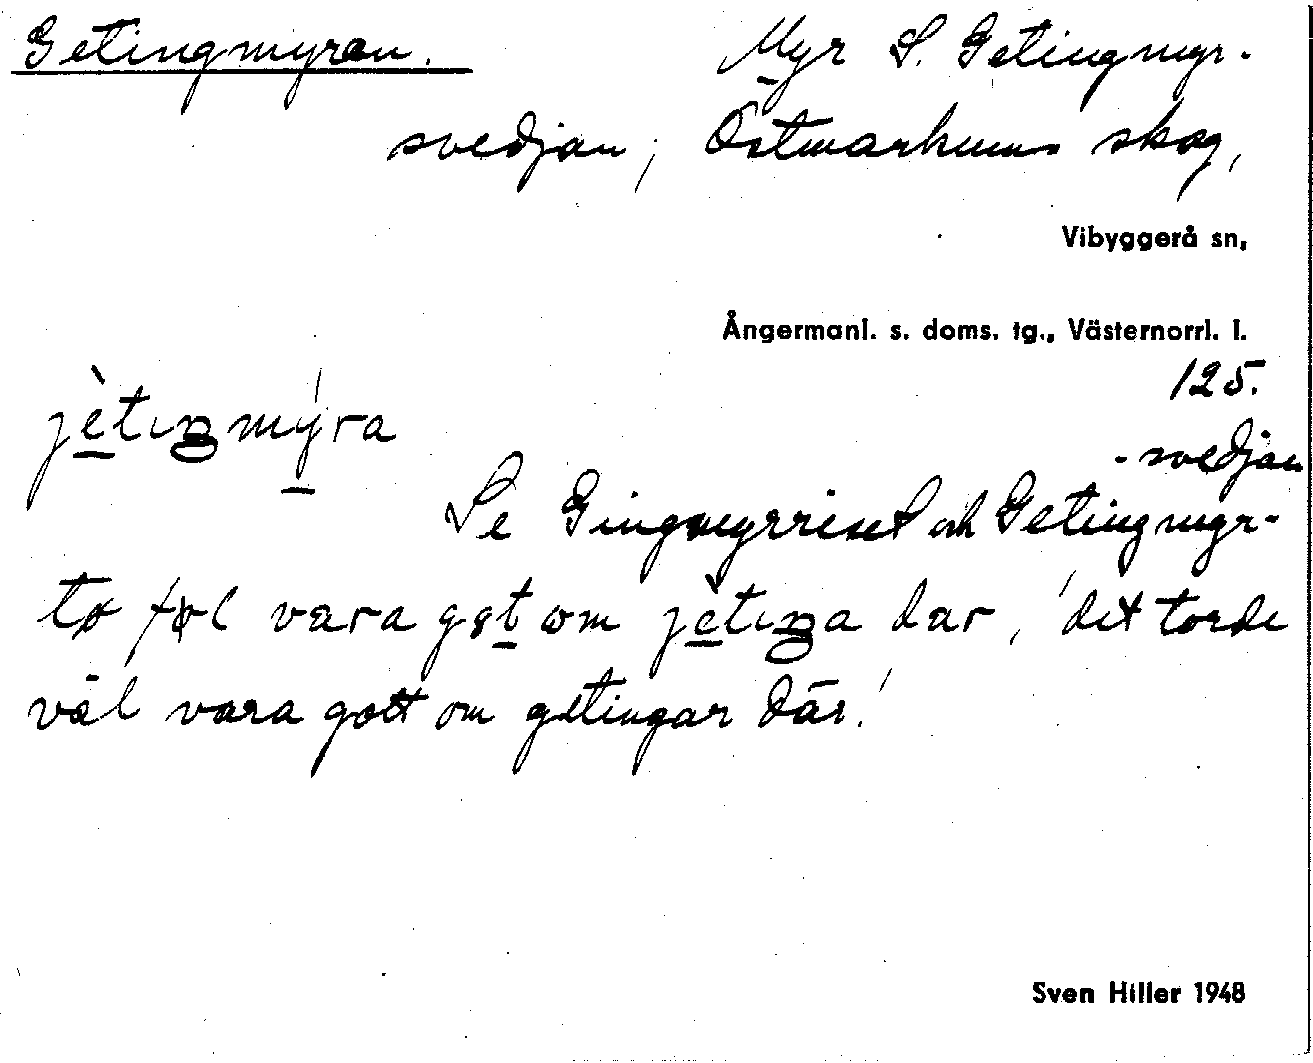 Getingmyran. Myr S. Getingmyr-
svedjan; Östmarkums skog,
Vibyggerå sn,
Ångermanl. s. doms. tg., Västernorrl. l.
125.
jètıŋmýra
-svedjan
Se Gingmyrriset och Getingmyr-
tø føl vara gɷt om jètıŋa dar, 'det torde
väl vara gott om getingar där.'
Sven Hiller 1948